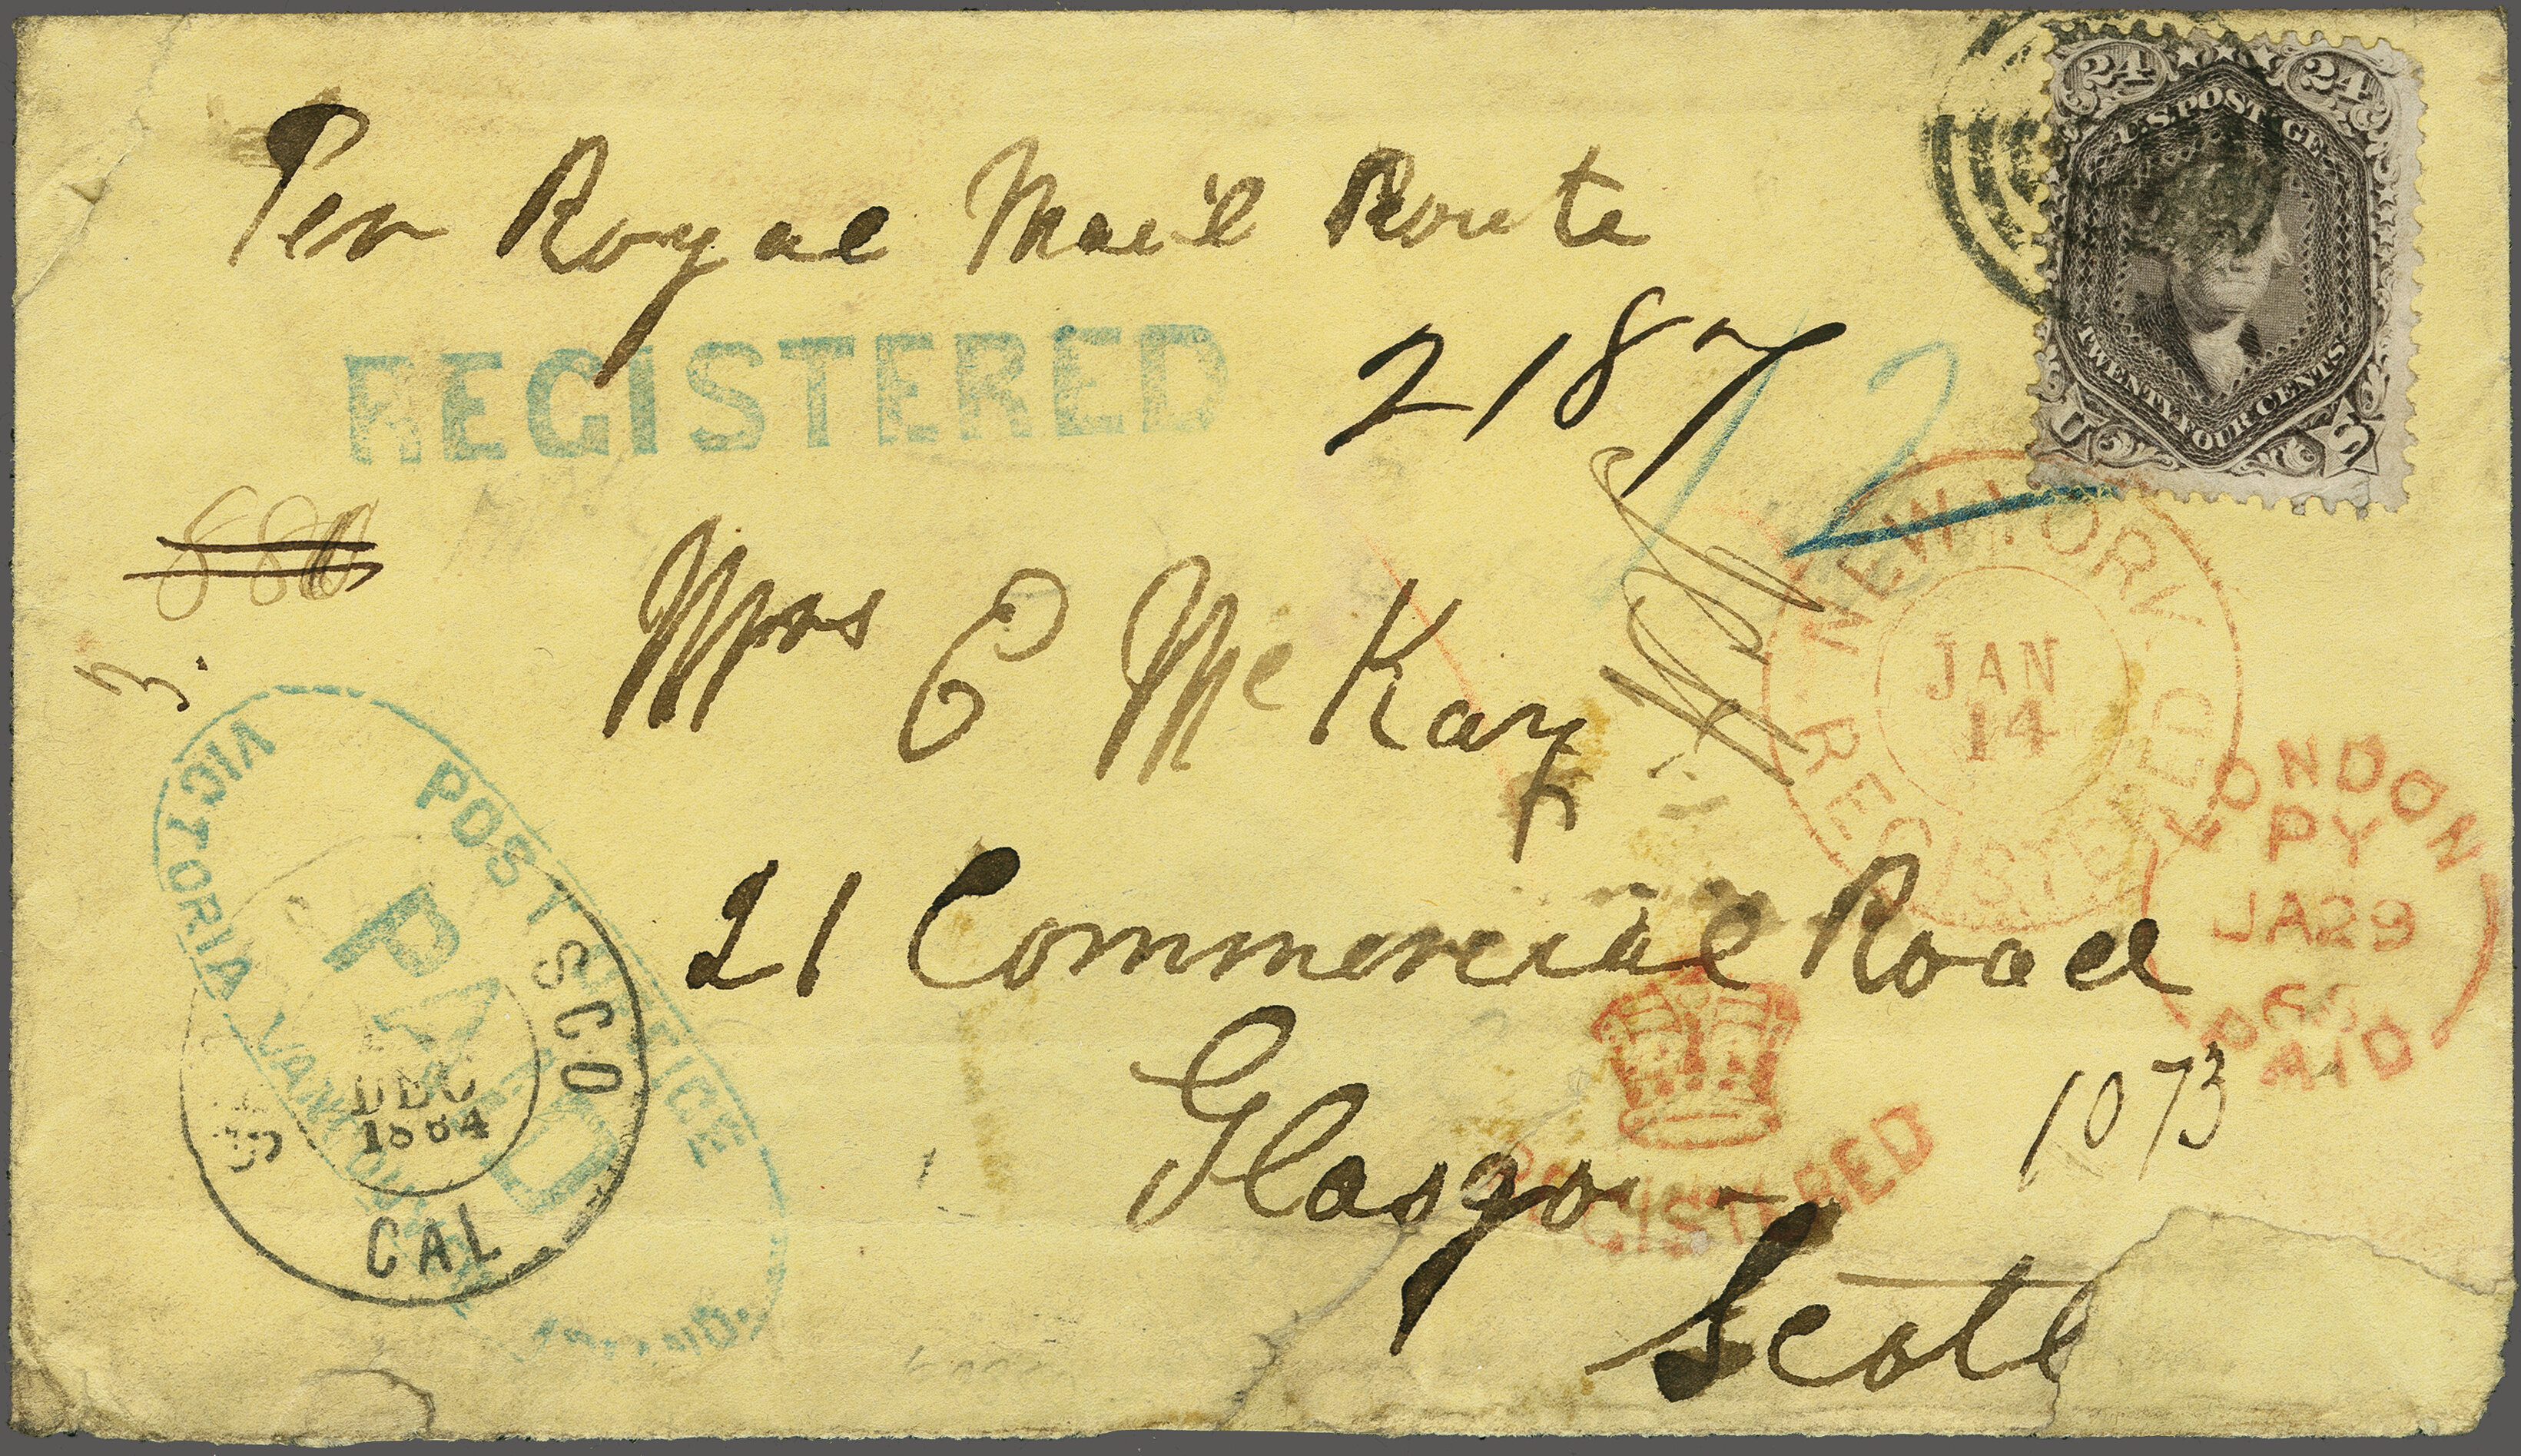 24 24
U.S. POSTAGE
TWENTY FOUR CENTS
U S
Per Royal Mail Route
REGISTERED
2187
12
880
3.
Mrs C McKay
NEW YORK
JAN
14
REGISTERED
LONDON
PY
JA29
65
PAID
21 Commercial Road
Glasgow
REGISTERED
1073
Scotl
POST OFFICE
PAID
VICTORIA VANCOUVER
SCO
DEC
1864
CAL